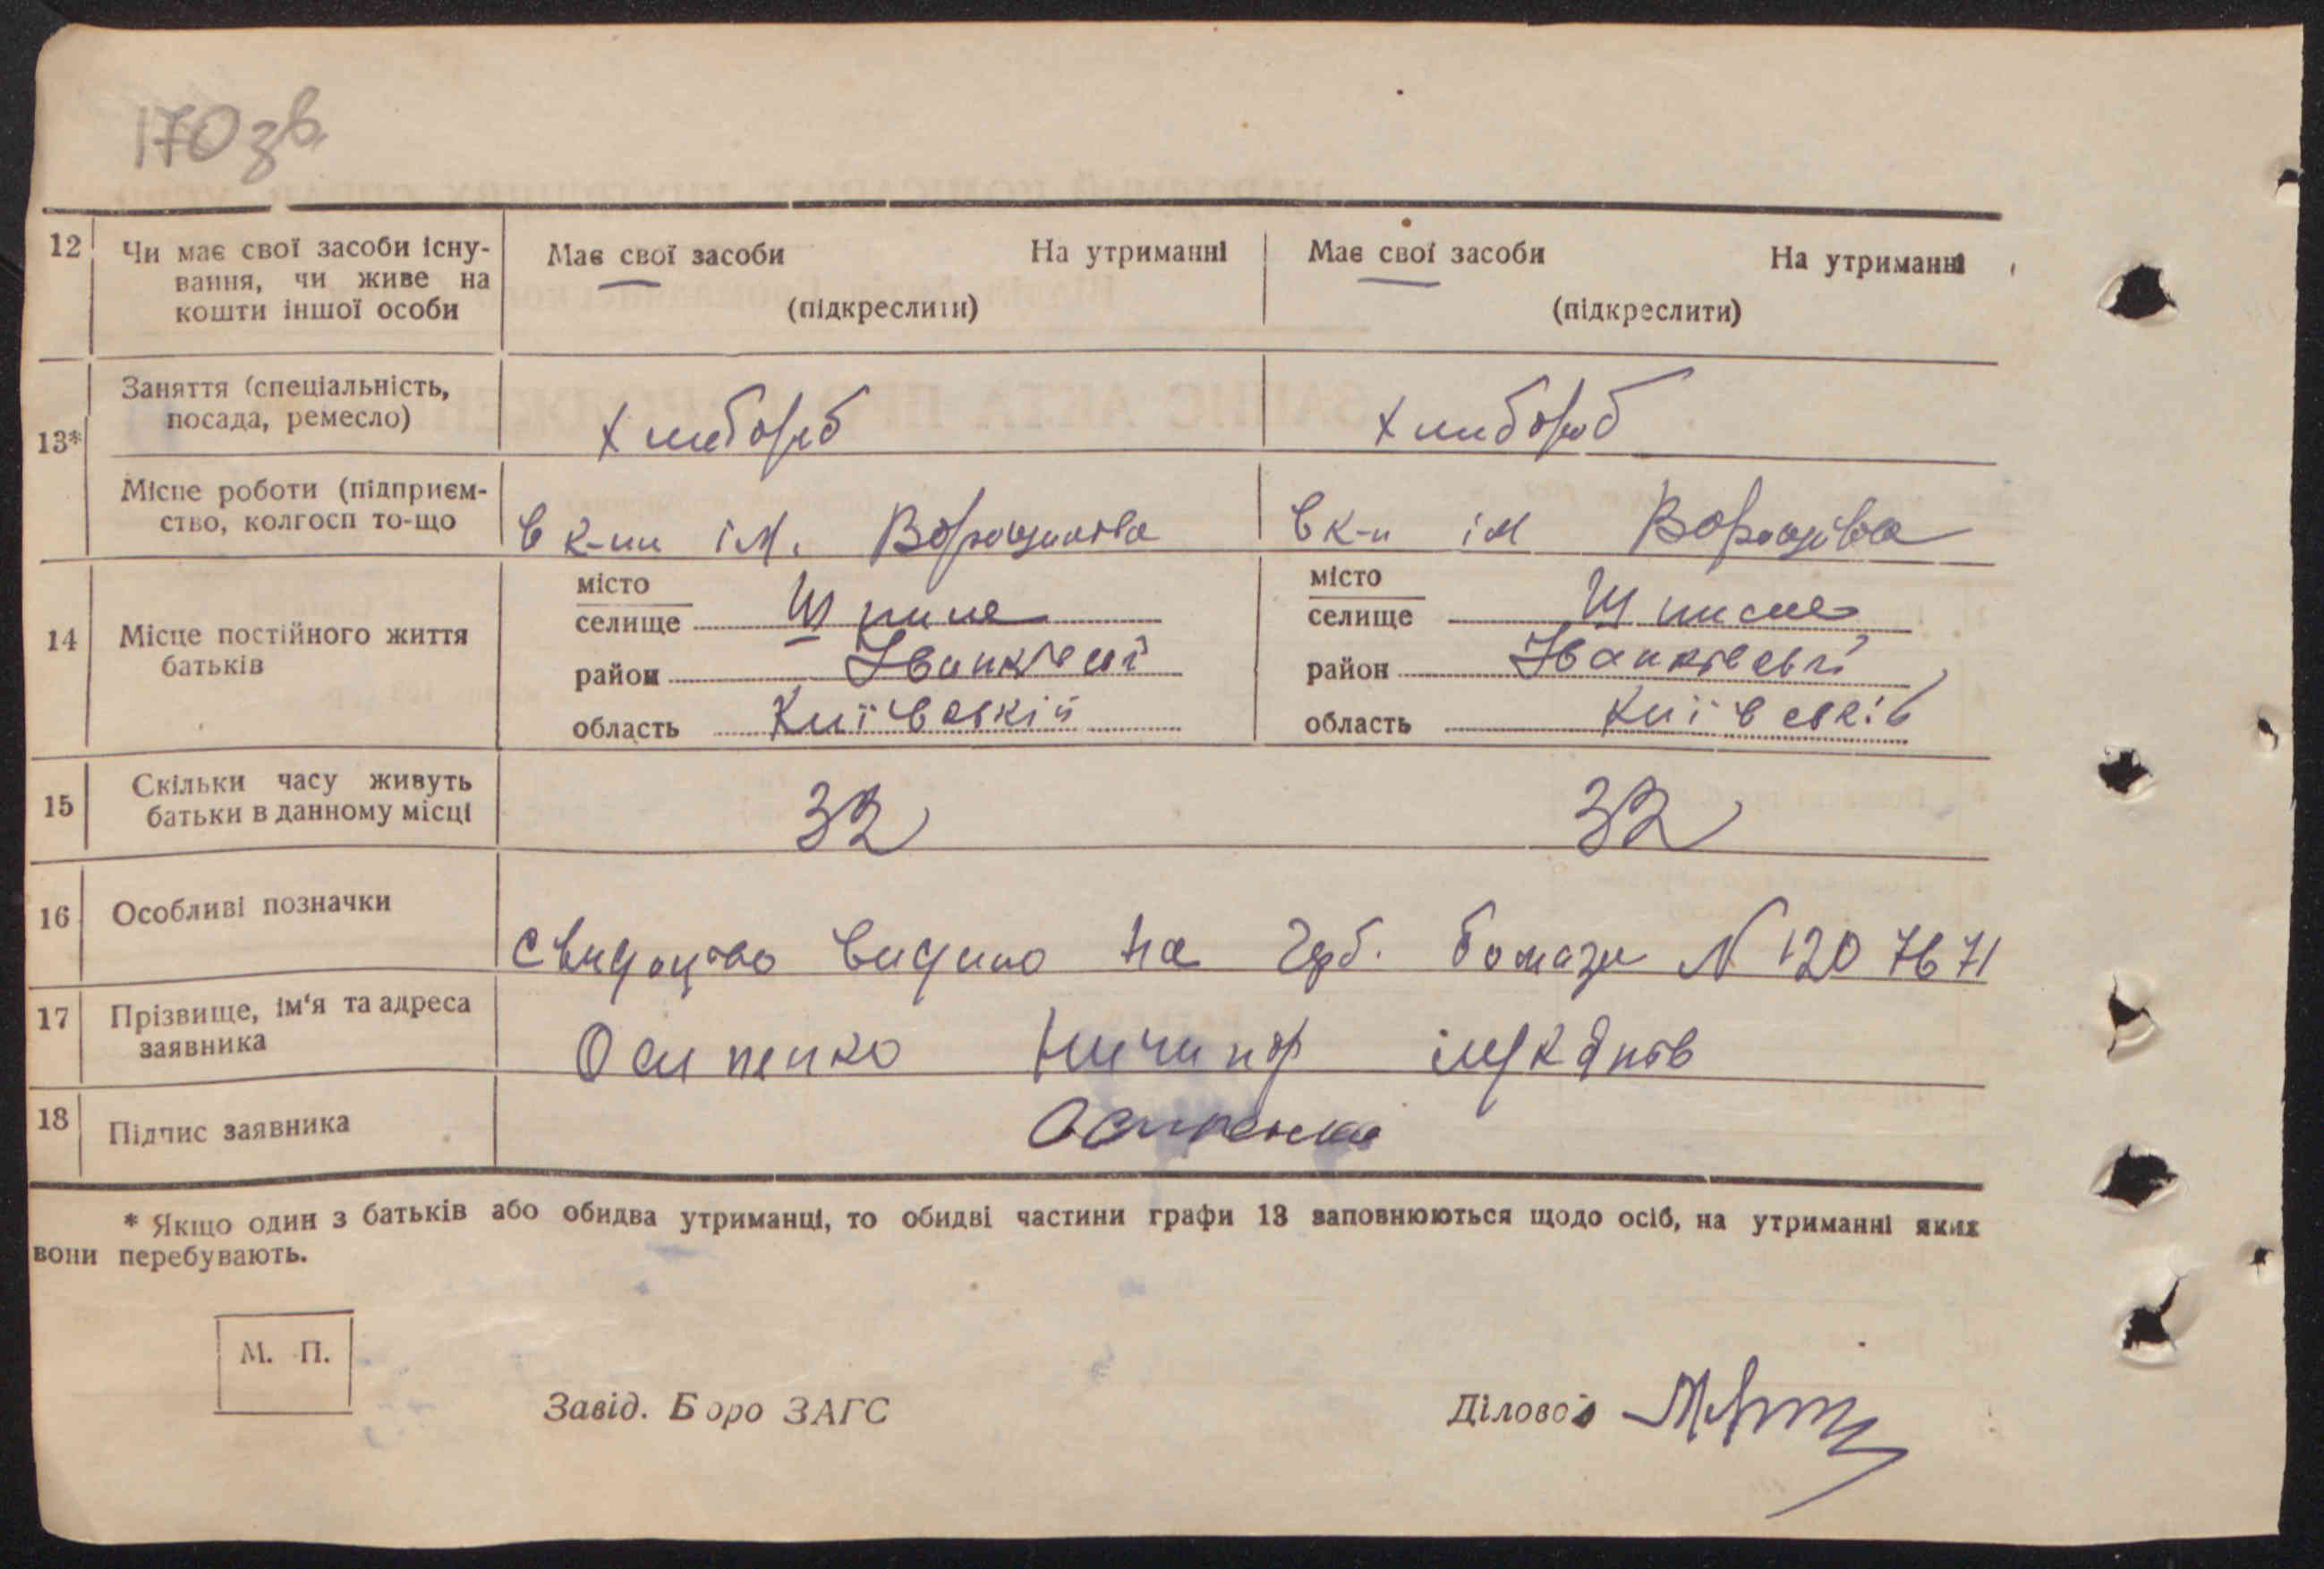 170 зв.
12 Чи має свої засоби існу- Має свої засоби На утриманні Має свої засоби На утриманні
вання, чи живе на
кошти іншої особи (підкреслити) (підкреслити)
Заняття (спеціальність,
посада, ремесло) хлибороб хлибороб
13*
Місце роботи (підприєм-
ство, колгосп то-що в к-пи ім. Ворошилова в к-п ім Ворошилова
місто місто
селище селище
14 Місце постійного життя
батьків район Іванківскі район Іванківскі
область Київскій область Київскій
15 Скільки часу живуть
батьки в данному місці 32 32
16 Особливі позначки
Свидоцтво видано на герб. бомази N 1207671
17 Прізвище, ім'я та адреса
заявника Осипенко Ничипор
18 Підпис заявника Осипенко
* Якщо один з батьків або обидва утриманці, то обидві частини графи 13 заповнюються щодо осіб, на утриманні яких
вони перебувають.
М. П.
Завід. Бюро ЗАГС Діловод